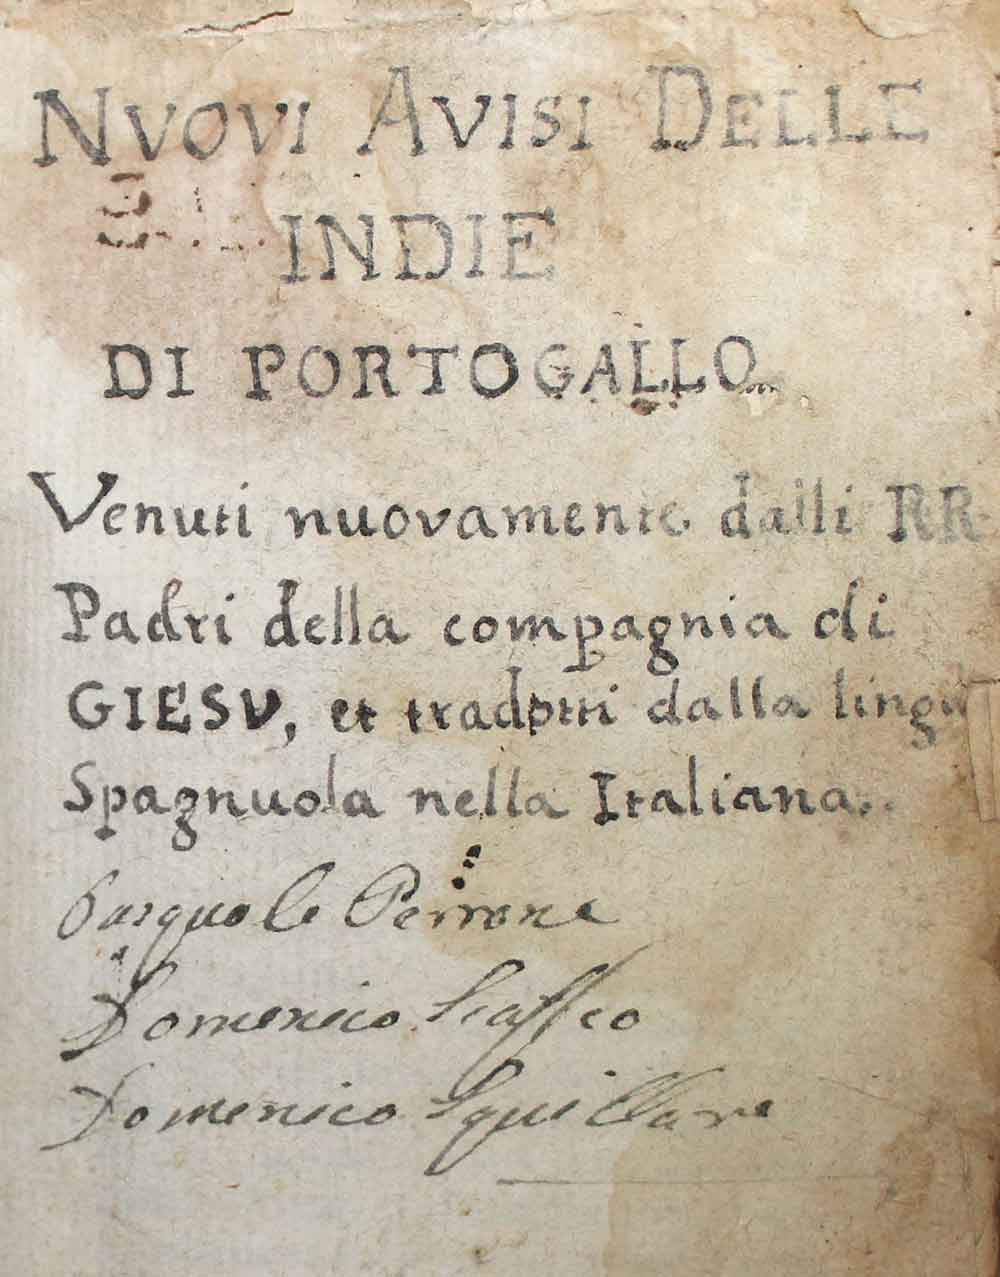 NVOVI AVISI DELLE
INDIE
DI PORTOGALLO
Venuti nuovamente dalli RR.
Padri della compagnia di
GIESV, et tradotti dalla lingu
Spagnuola nella Italiana..
Pasquale Perrone
Domenico
Domenico Squillare